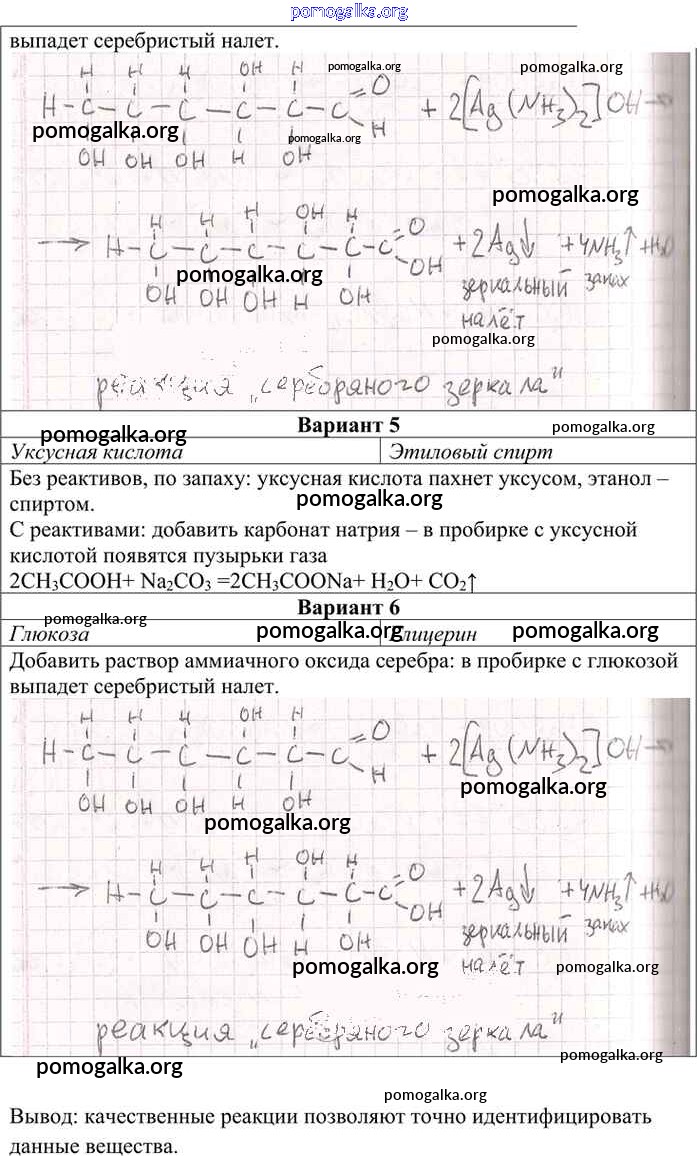 pomogalka.org
выпадет серебристый налет.
H OH H
pomogalka.org
pomogalka.org
H–C–C–C–C–C–C=O + 2[Ag(NH₃)₂]OH→
pomogalka.org
pomogalka.org
H
OH OH OH H OH
pomogalka.org
H H H OH H
→ H–C–C–C–C–C–C=O +2Ag↓ +4NH₃↑ +H₂O
OH
pomogalka.org
OH OH OH H OH
зеркальный запах
налёт
pomogalka.org
реакция „серебряного зеркала"
Вариант 5
pomogalka.org
pomogalka.org
Уксусная кислота Этиловый спирт
Без реактивов, по запаху: уксусная кислота пахнет уксусом, этанол –
спиртом.
pomogalka.org
С реактивами: добавить карбонат натрия – в пробирке с уксусной
кислотой появятся пузырьки газа
2CH₃COOH+ Na₂CO₃ =2CH₃COONa+ H₂O+ CO₂↑
Вариант 6
pomogalka.org
Глюкоза Глицерин
pomogalka.org
pomogalka.org
Добавить раствор аммиачного оксида серебра: в пробирке с глюкозой
выпадет серебристый налет.
H H H OH H
H–C–C–C–C–C–C=O + 2[Ag(NH₃)₂]OH→
H
pomogalka.org
OH OH OH H OH
pomogalka.org
H H H OH H
→ H–C–C–C–C–C–C=O +2Ag↓ +4NH₃↑ +H₂O
OH
OH OH OH H OH
зеркальный запах
налёт
pomogalka.org
pomogalka.org
реакция „серебряного зеркала"
pomogalka.org
pomogalka.org
pomogalka.org
Вывод: качественные реакции позволяют точно идентифицировать
данные вещества.